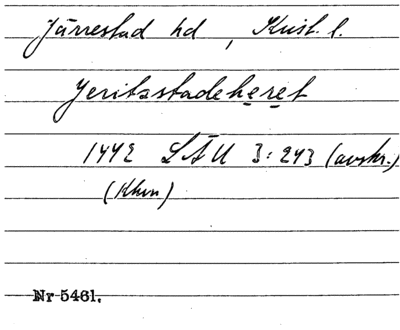 Järrestad hd, Krist. l.
Jeritsstadeheret
1442 LÄU 3:243 (avskr.)
(Khvn)
Nr 5461.